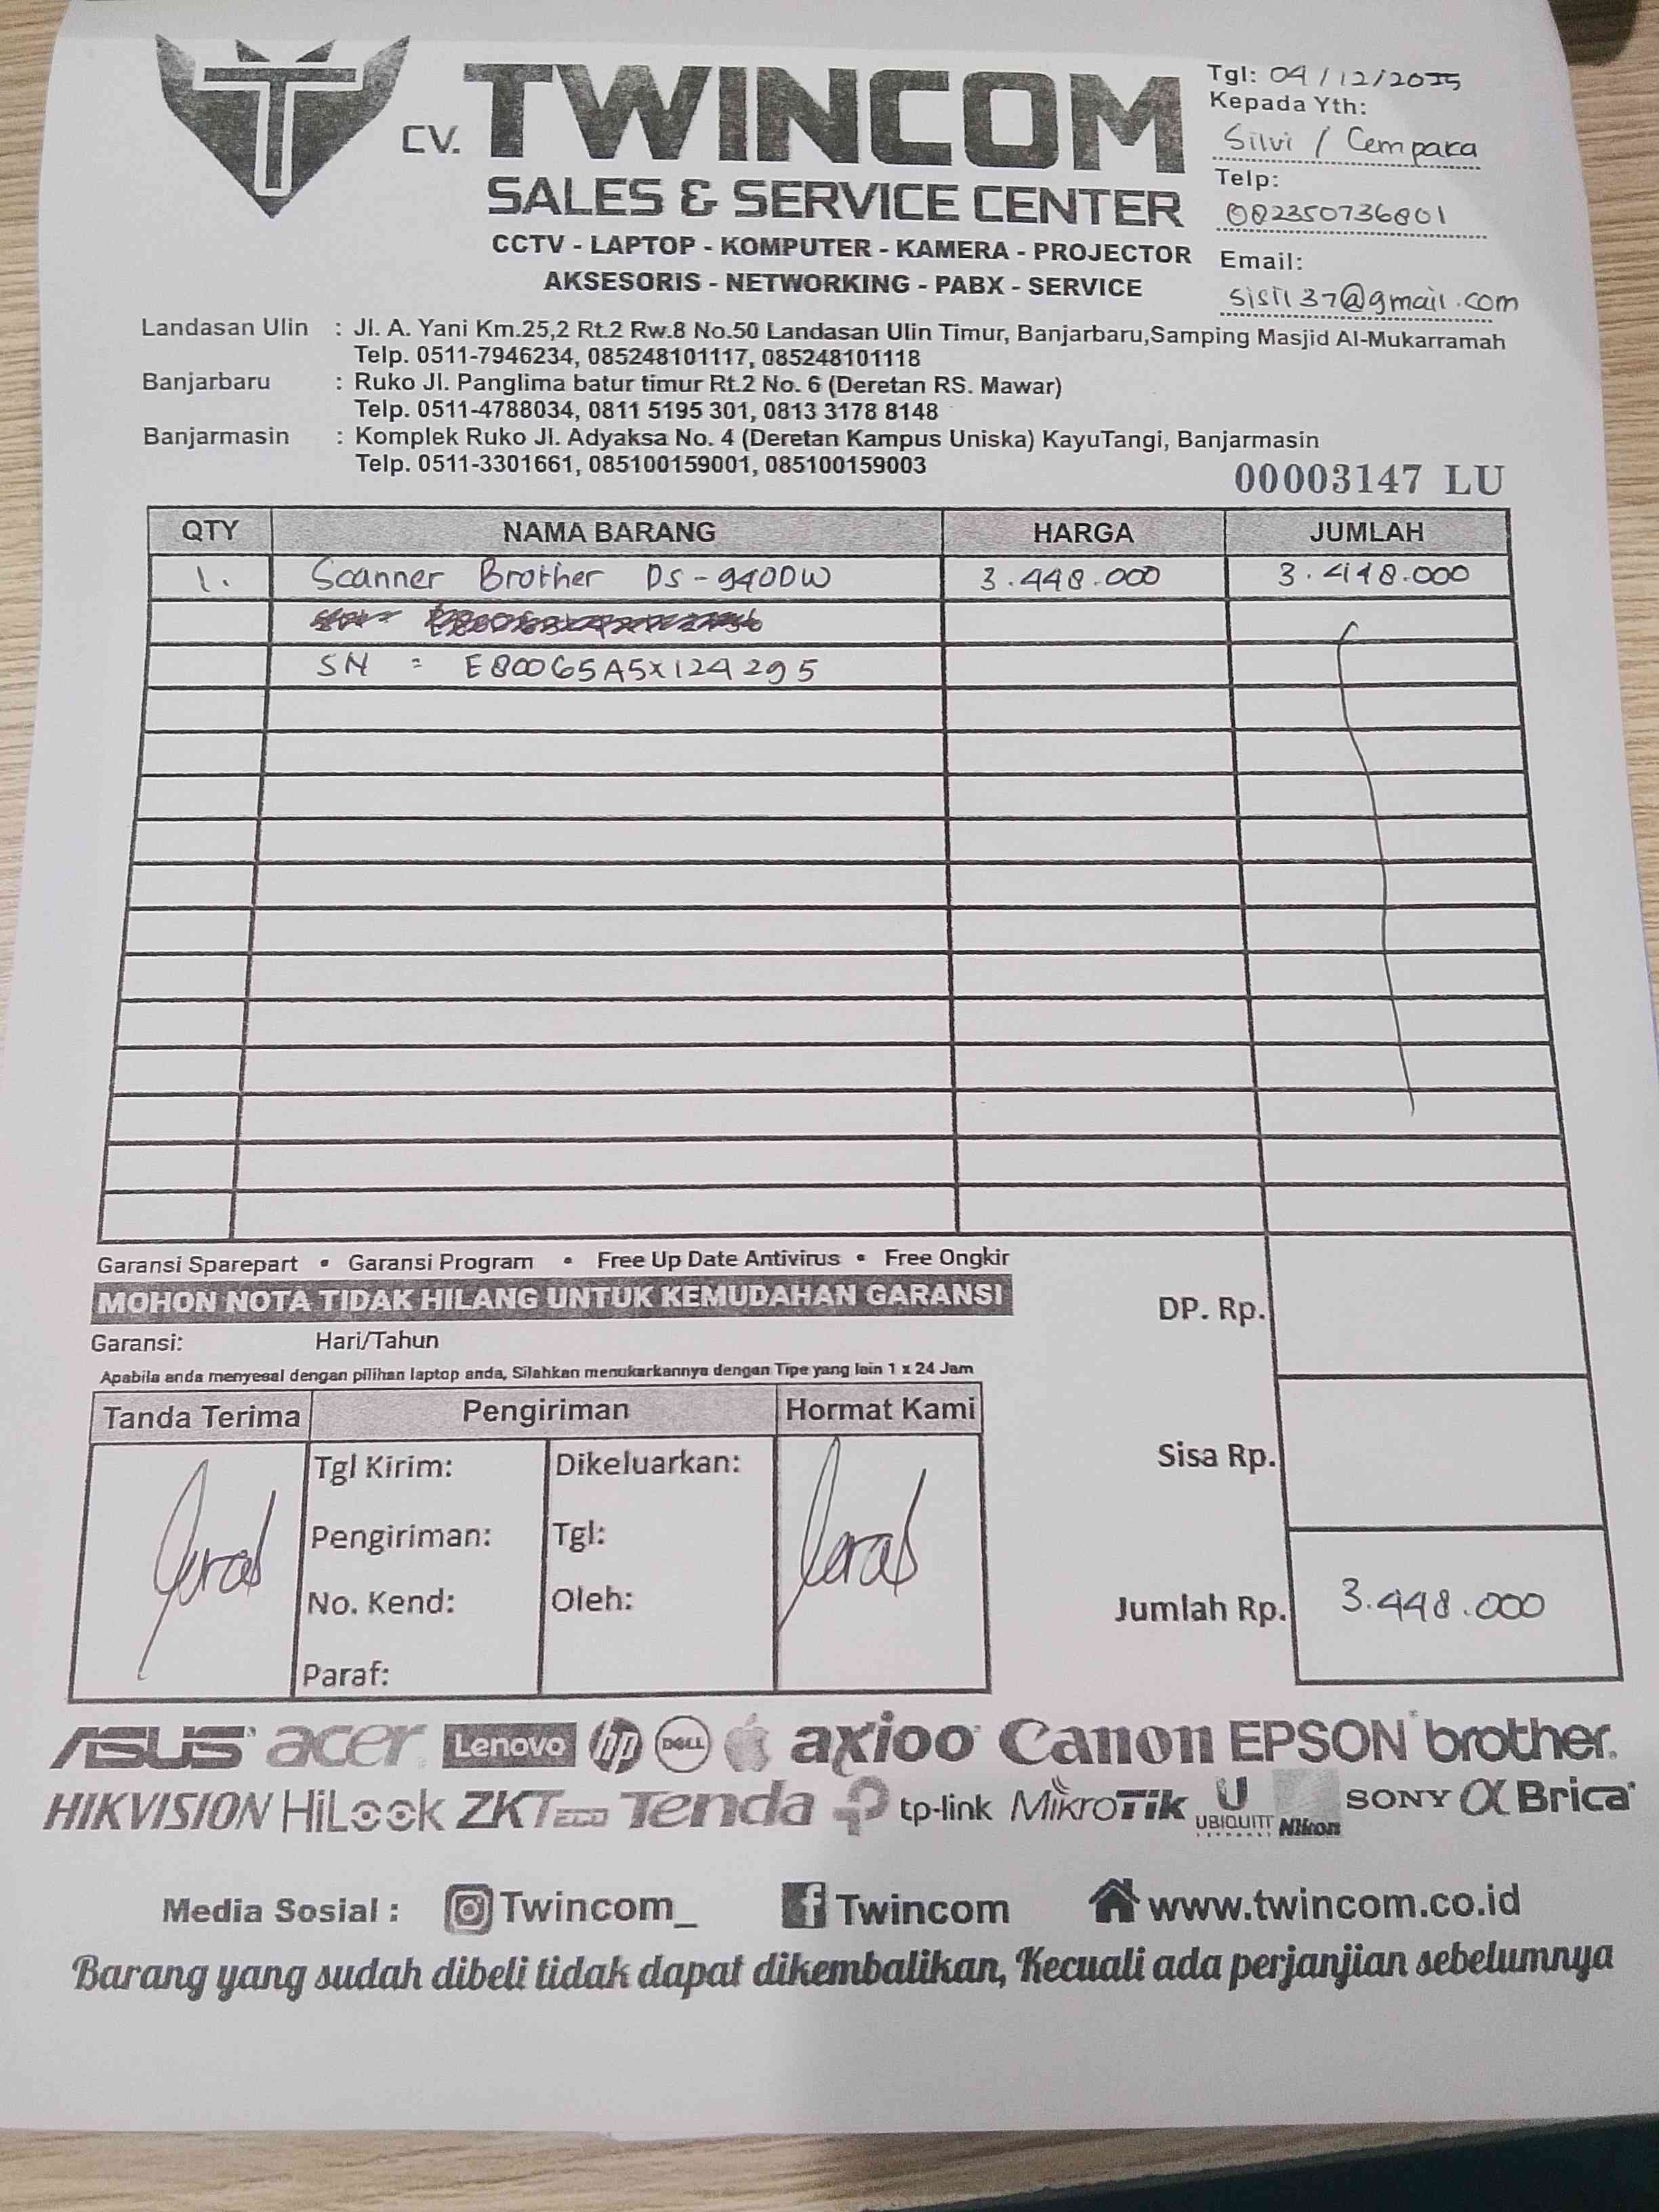 CV. TWINCOM
SALES & SERVICE CENTER
CCTV - LAPTOP - KOMPUTER - KAMERA - PROJECTOR
AKSESORIS - NETWORKING - PABX - SERVICE
Tgl: 04/12/2025
Kepada Yth:
Silvi / Cempaka
Telp:
082350736801
Email:
sisil37@gmail.com
Landasan Ulin : Jl. A. Yani Km.25,2 Rt.2 Rw.8 No.50 Landasan Ulin Timur, Banjarbaru,Samping Masjid Al-Mukarramah
Telp. 0511-7946234, 085248101117, 085248101118
Banjarbaru : Ruko Jl. Panglima batur timur Rt.2 No. 6 (Deretan RS. Mawar)
Telp. 0511-4788034, 0811 5195 301, 0813 3178 8148
Banjarmasin : Komplek Ruko Jl. Adyaksa No. 4 (Deretan Kampus Uniska) KayuTangi, Banjarmasin
Telp. 0511-3301661, 085100159001, 085100159003
00003147 LU
QTY NAMA BARANG HARGA JUMLAH
1. Scanner Brother DS-940DW 3.448.000 3.448.000
SN = E80065A5X124295
Garansi Sparepart • Garansi Program • Free Up Date Antivirus • Free Ongkir
MOHON NOTA TIDAK HILANG UNTUK KEMUDAHAN GARANSI
Garansi: Hari/Tahun
Apabila anda menyesal dengan pilihan laptop anda, Silahkan menukarkannya dengan Tipe yang lain 1 x 24 Jam
DP. Rp.
Sisa Rp.
Jumlah Rp. 3.448.000
Tanda Terima Pengiriman Hormat Kami
Tgl Kirim: Dikeluarkan:
Pengiriman: Tgl:
No. Kend: Oleh:
Paraf:
ASUS acer Lenovo hp DELL axioo Canon EPSON brother
HIKVISION HiLook ZKTeco Tenda tp-link MikroTik U UBIQUITI Nikon SONY α Brica
Media Sosial : Twincom_ Twincom www.twincom.co.id
Barang yang sudah dibeli tidak dapat dikembalikan, Kecuali ada perjanjian sebelumnya